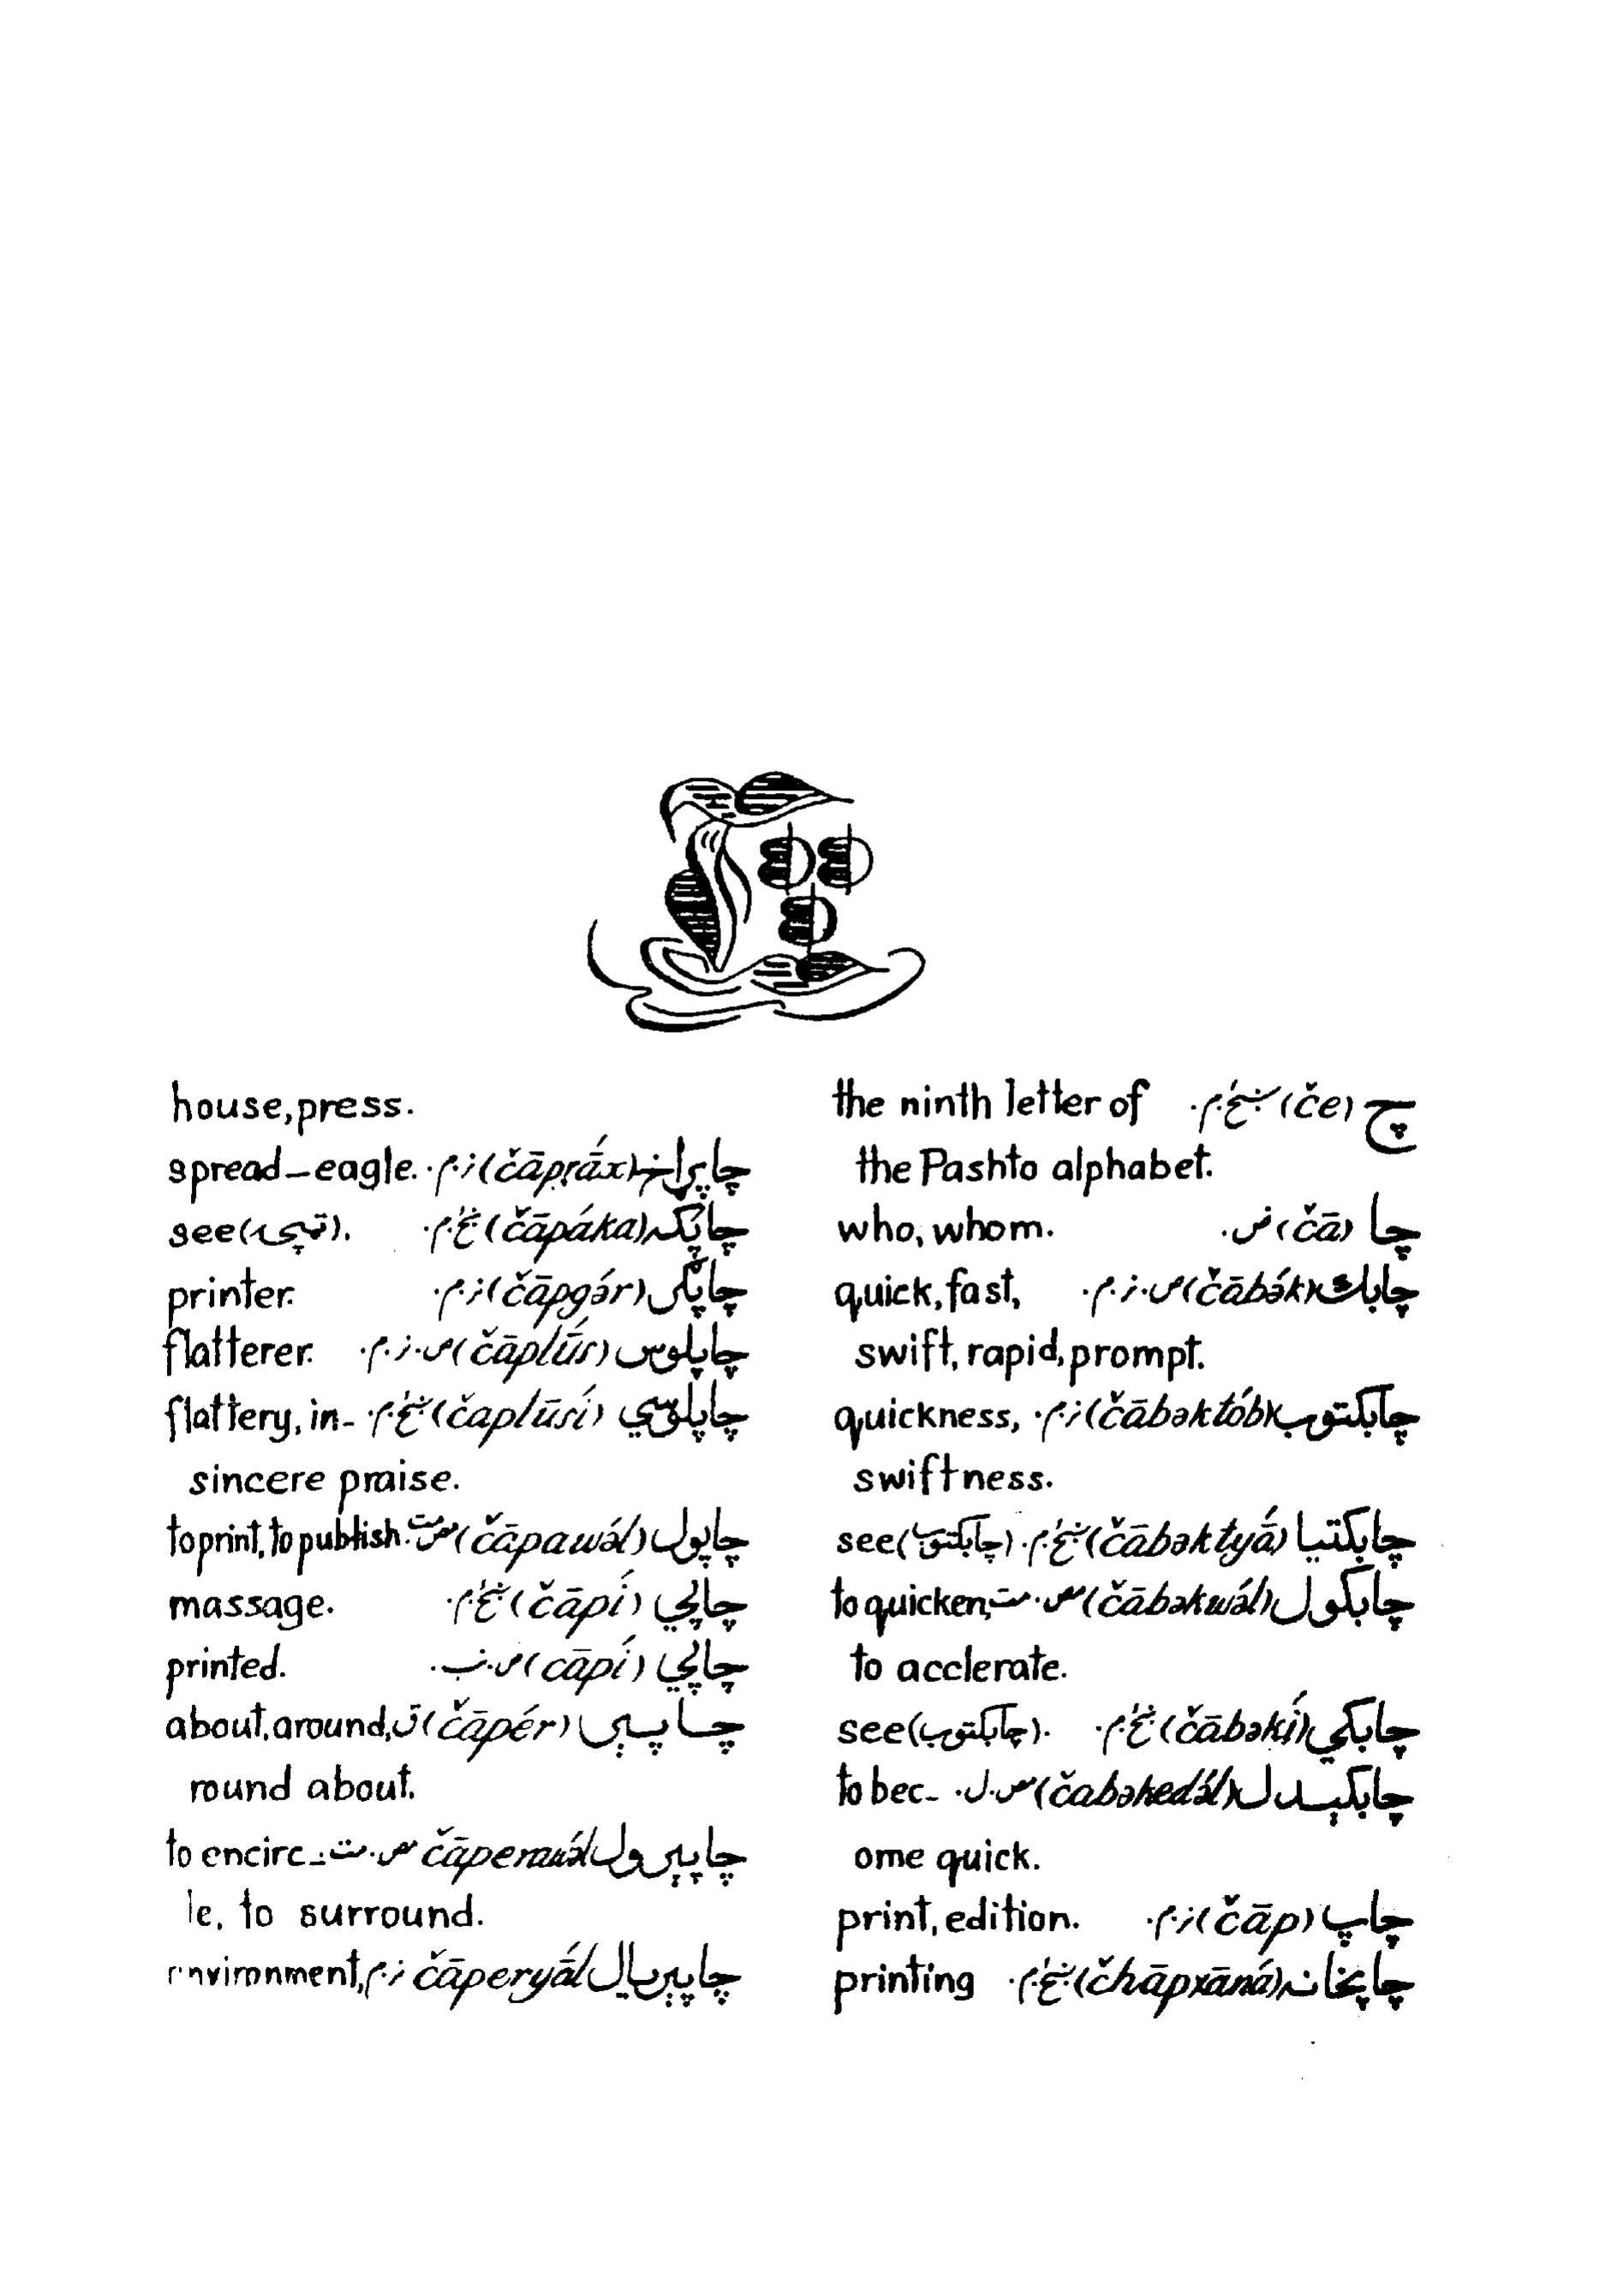 چ (če) ښځ.م. the ninth letter of
the Pashto alphabet.
چا (čā) ض. who, whom.
چابك (čābә́k) ص.ن.م. quick, fast,
swift, rapid, prompt.
چابکتوب (čābәktób) ن.م. quickness,
swiftness.
چابکتیا (čābәktyā́) ښځ.م. see (چابکتوب).
چابکول (čābәkwә́l) ص.ت. to quicken,
to acclerate.
چابکي (čābәkí) ښځ.م. see (چابکتوب).
چابکېدل (čabәkedә́l) ص.ل. to bec-
ome quick.
چاپ (čāp) ن.م. print, edition.
چاپخانه (čhāpxāná) ښځ.م. printing
house, press.
چاپړاخ (čāpṛā́x) ن.م. spread-eagle.
چاپکه (čāpáka) ښځ.م. see
چاپګر (čāpgә́r) ن.م. printer.
چاپلوس (čāplū́s) ص.ن.م. flatterer.
چاپلوسي (čaplūsí) ښځ.م. flattery, in-
sincere praise.
چاپول (čāpawә́l) ص.ت. to print, to publish.
چاپي (čāpí) ښځ.م. massage.
چاپي (cāpí) ص.ب. printed.
چاپېر (čāpér) ق. about, around,
round about.
چاپېرول čāperawә́l ص.ت. to encirc-
le, to surround.
چاپېریال čāperyā́l ن.م. environment,